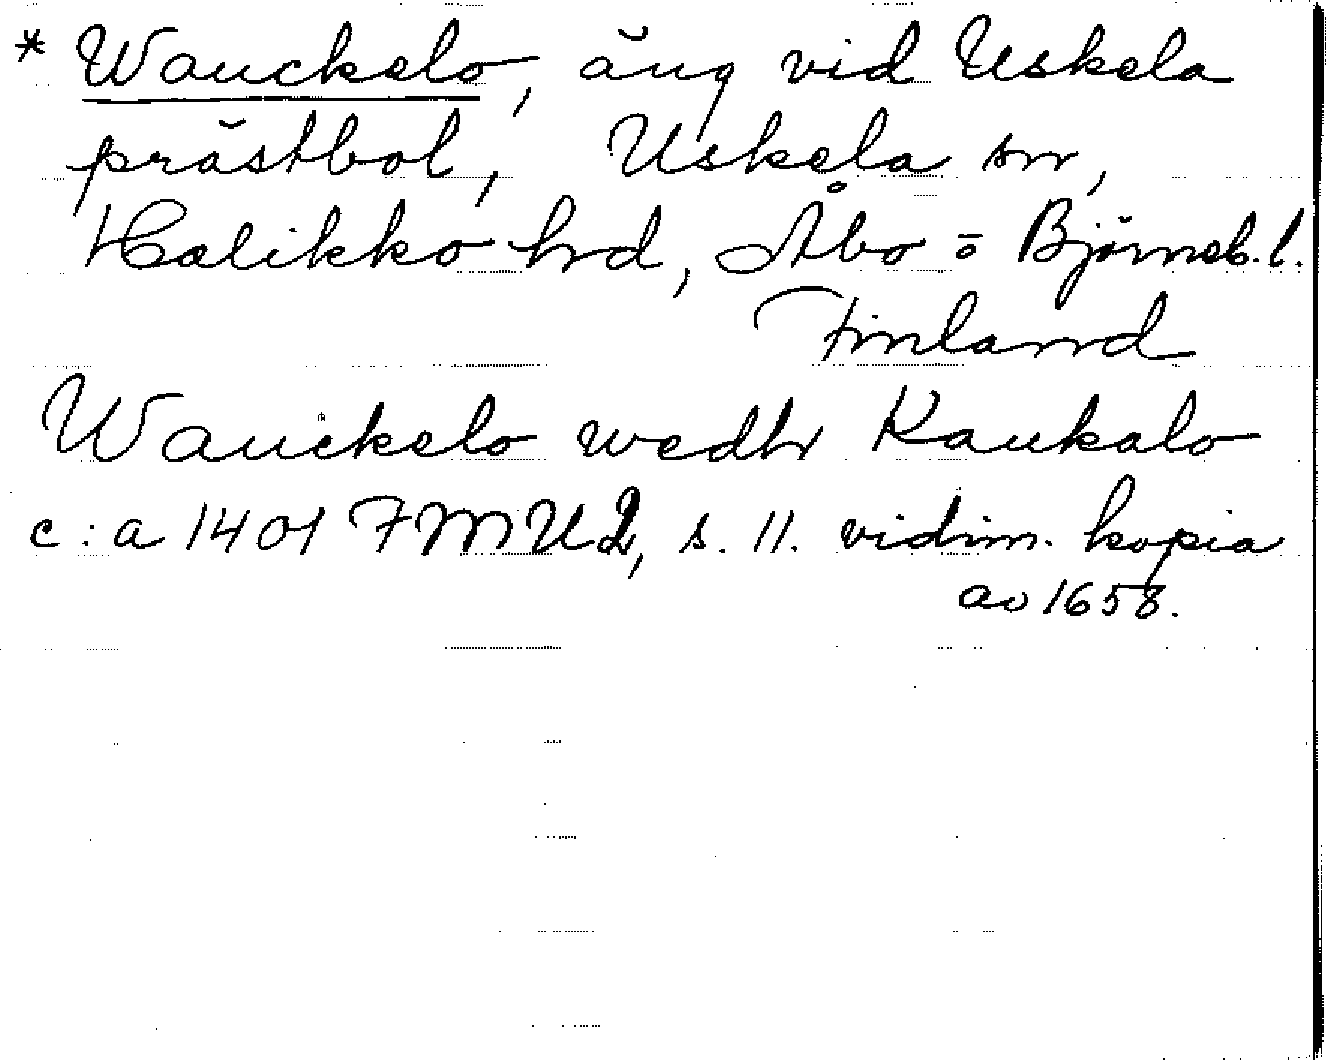 * Wauckelo, äng vid Uskela
prästbol, Uskela sn,
Halikko hrd, Åbo o Björneb. l.
Finland
Wauckelo wedh Kaukalo
c:a 1401 FMU 2, s. 11. vidim. kopia
av 1658.